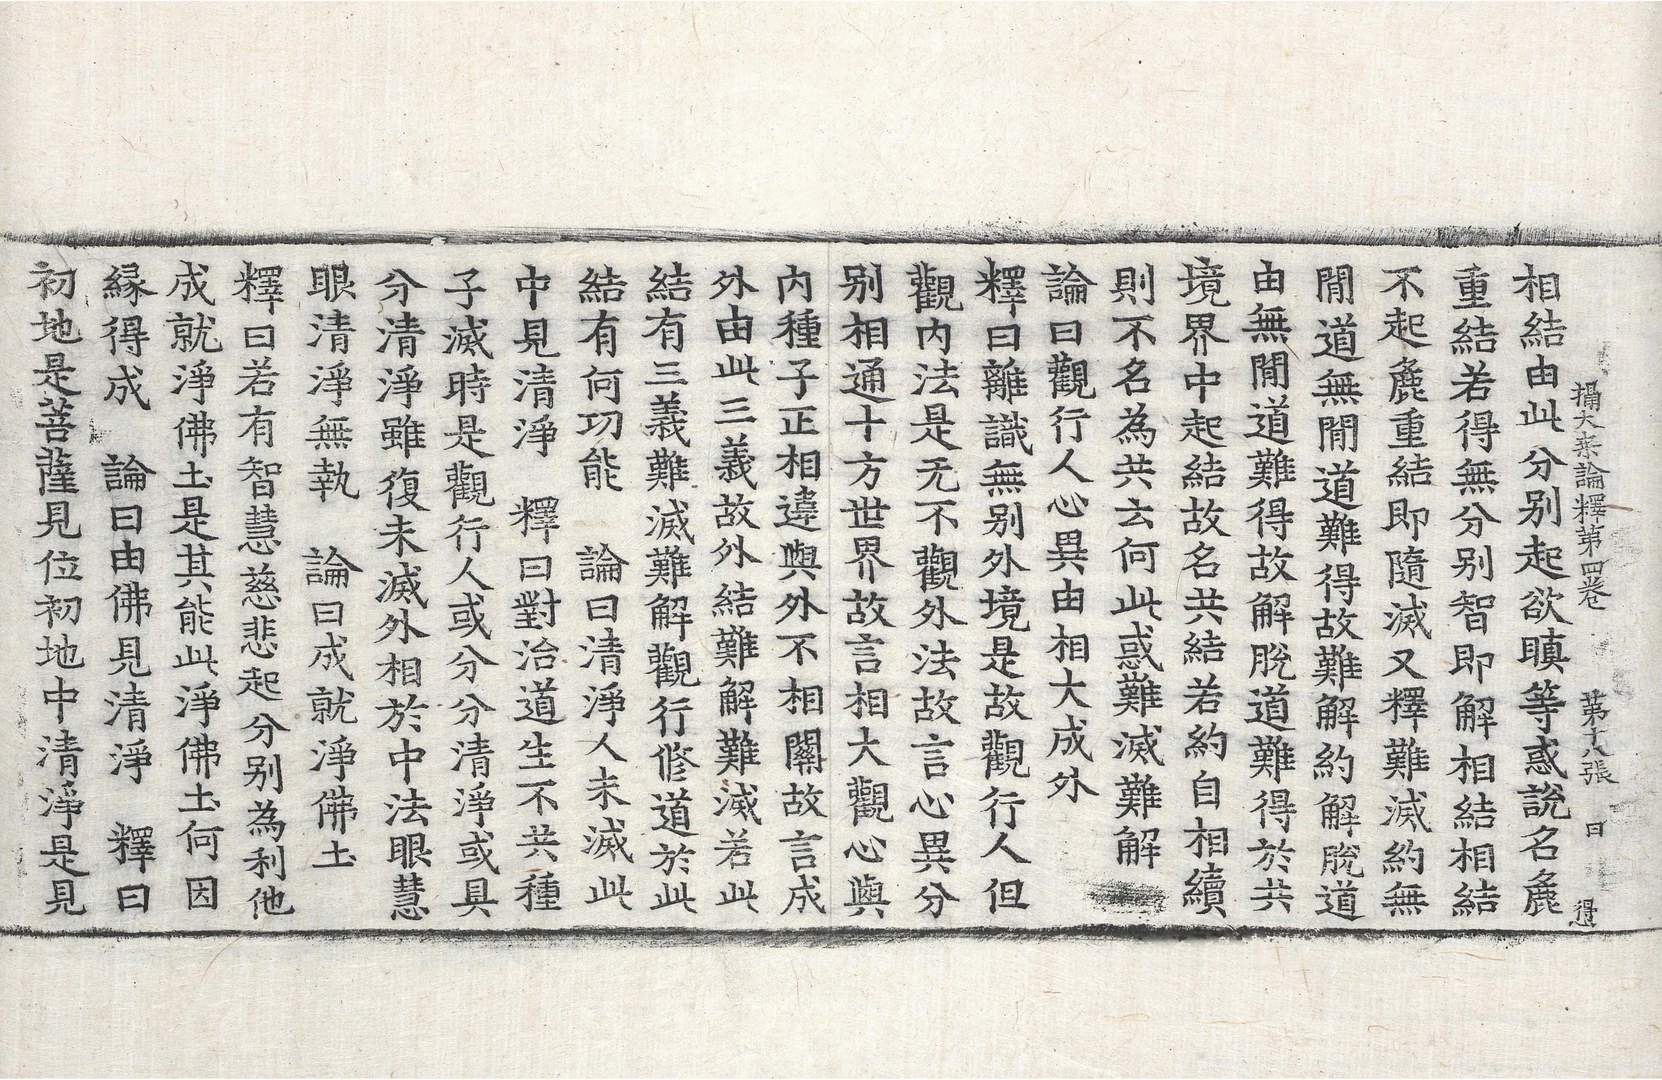 攝大乗論釋第四卷　第十八張　日　得
相結由此分別起欲瞋等惑說名麁
重結若得無分別智即解相結相結
不起麁重結即隨滅又釋難滅約無
閒道無閒道難得故難解約解脫道
由無閒道難得故解脫道難得於共
境界中起結故名共結若約自相續
則不名為共云何此惑難滅難解
論曰觀行人心異由相大成外
釋曰離識無別外境是故觀行人但
觀內法是无不觀外法故言心異分
別相通十方世界故言相大觀心與
內種子正相違與外不相關故言成
外由此三義故外結難解難滅若此
結有三義難滅難解觀行修道於此
結有何功能　論曰清淨人未滅此
中見清淨　釋曰對治道生不共種
子滅時是觀行人或分分清淨或具
分清淨雖復未滅外相於中法眼慧
眼清淨無執　論曰成就淨佛土
釋曰若有智慧慈悲起分別為利他
成就淨佛土是其能此淨佛土何因
緣得成　論曰由佛見清淨　釋曰
初地是菩薩見位初地中清淨是見